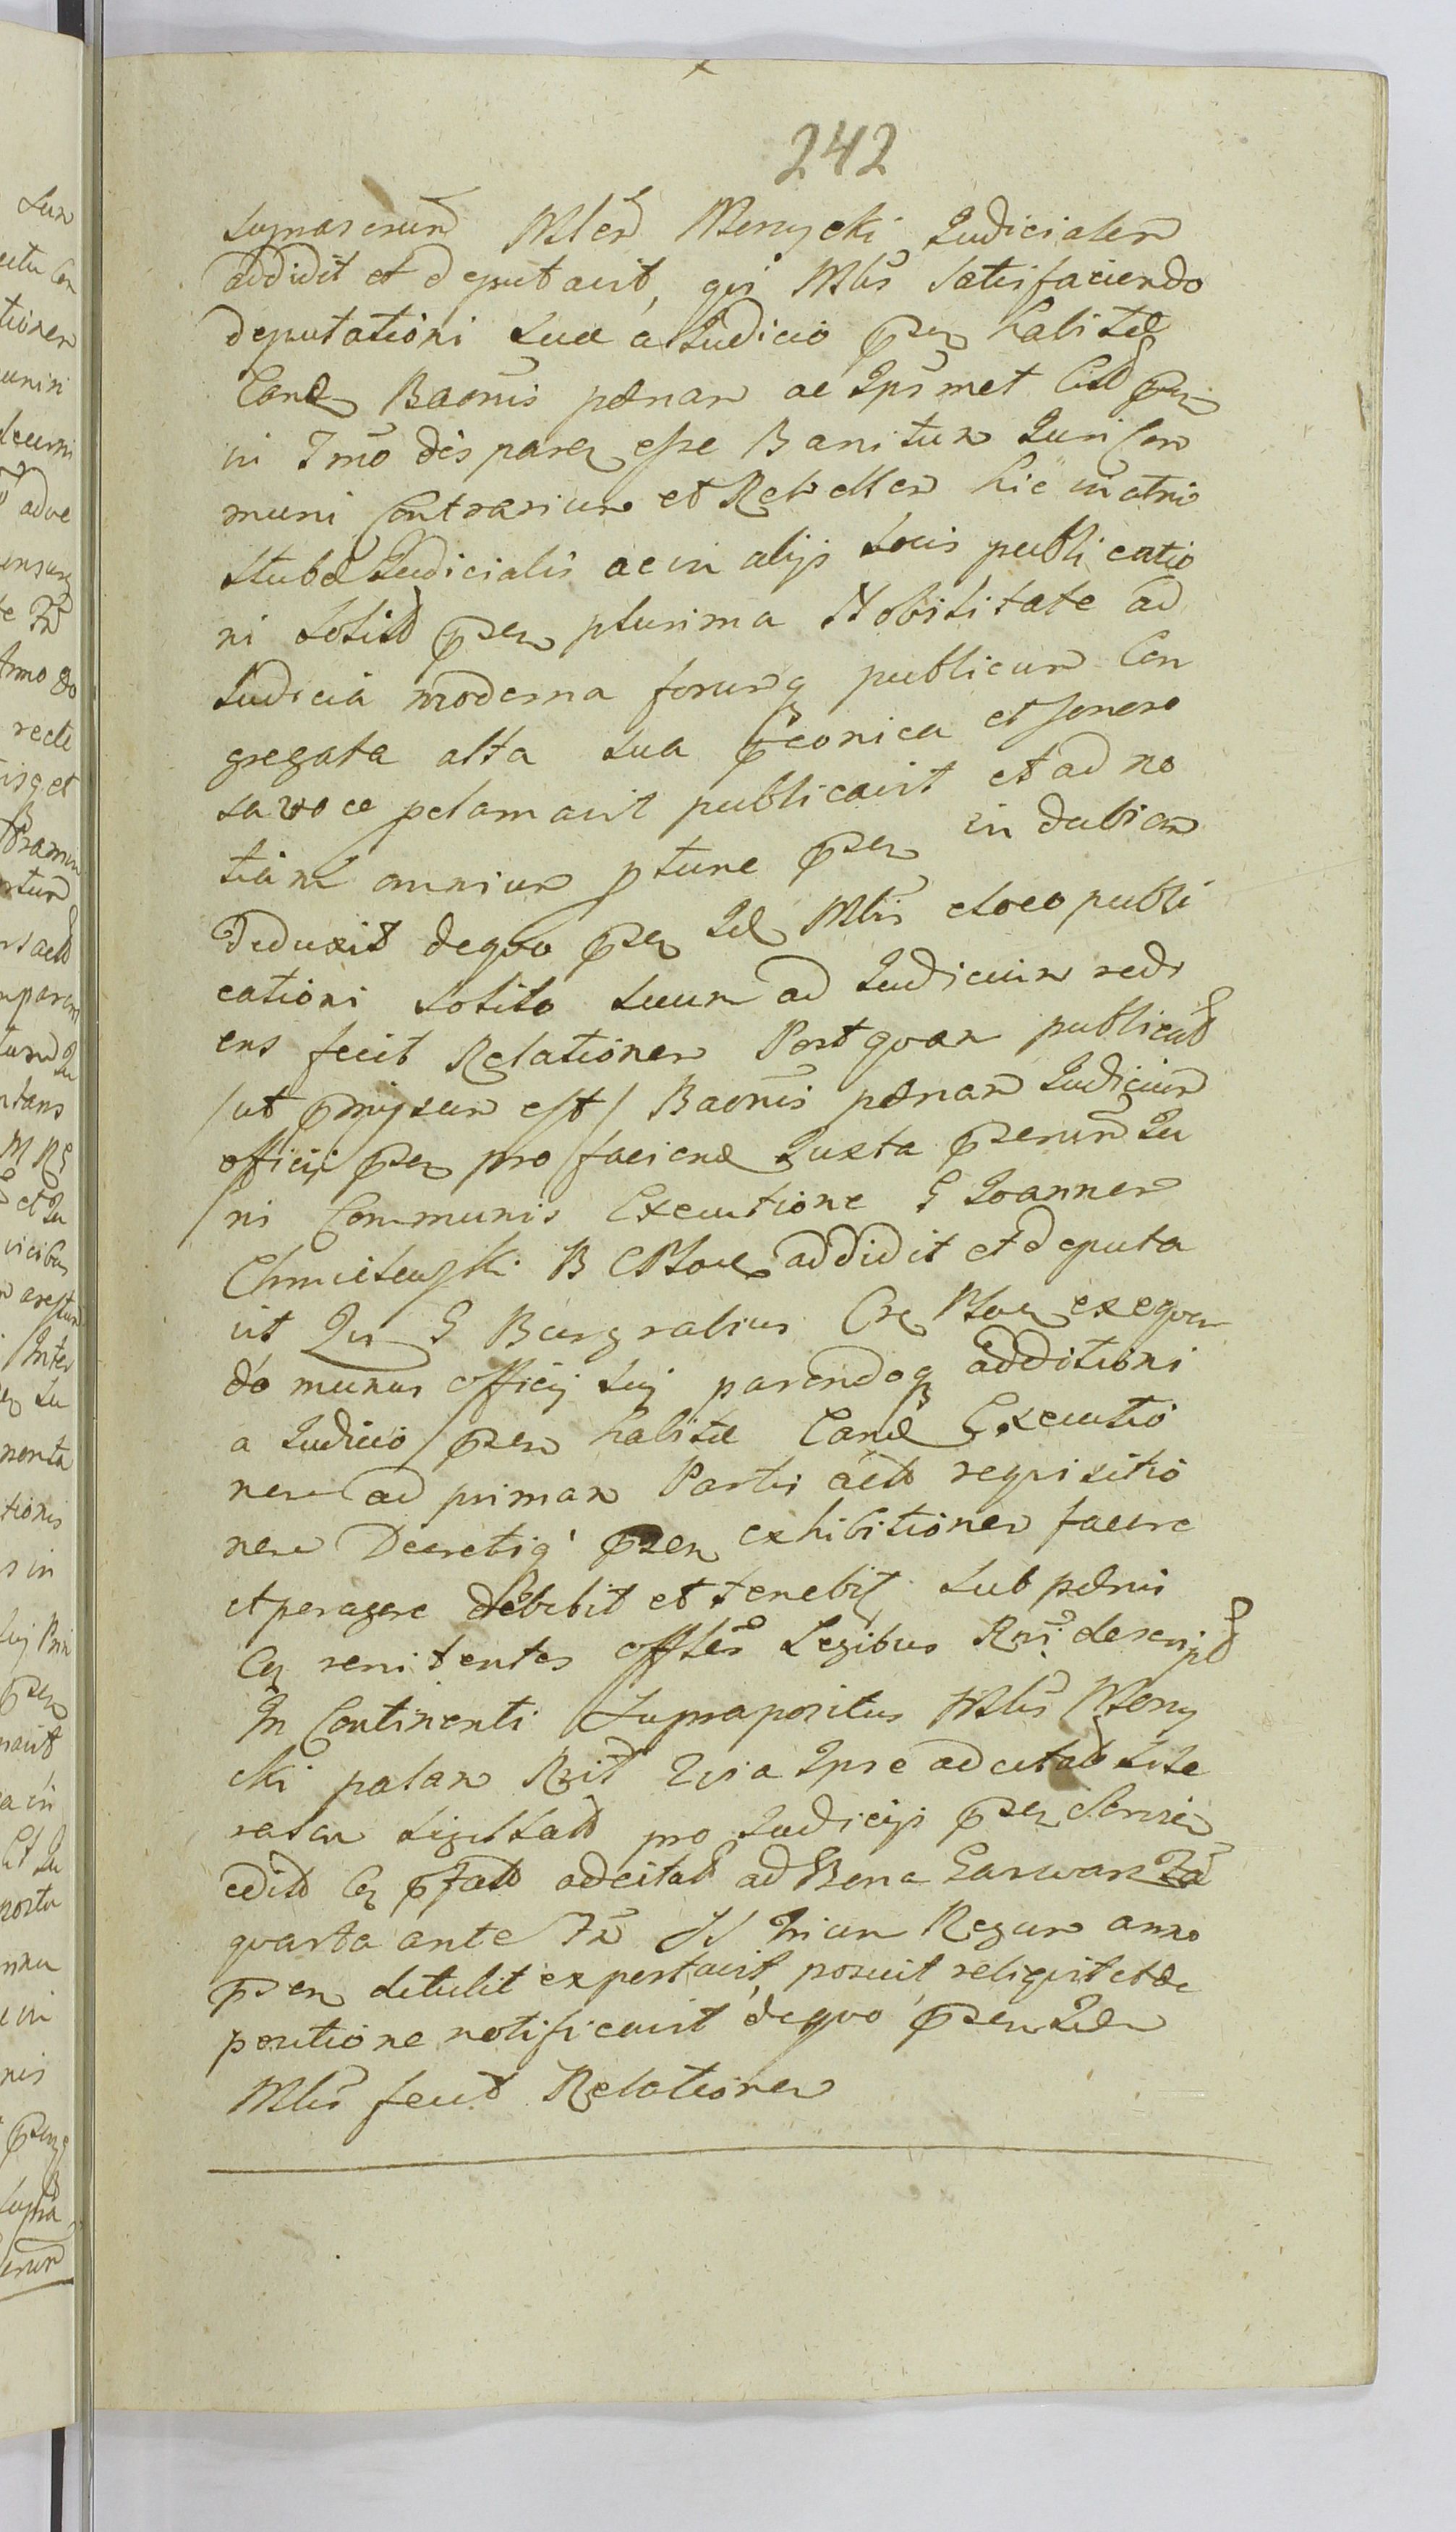 242
supraserum Mlem Wenycki Judicialem
addidit et deputavit, qui Mlis satisfaciendo
deputationi suæ a Judicio pser habitæ
eand Baonis pænam ac Ipsmet Citd
in Tmo dës paren esse Banitum Juri Com
muni Contrarium et Rebellem hic in atrio
stubæ Judicialis ac in alijs Locis publicatio
ni solitd pser plurima Nobilitate ad
Judicia moderna forumq publicum Con
gregata alta sua et sonoro
sa voce pclamavit publicavit et ad no
titiam omnium ptunc pser in dubiam
deduxit dequo pser Id Mlis eloco publi
cationi solito suum ad Judicium redi
ens fecit Relationem Post quam publicatd
/ut pmissum est/ Baonis pænam Judicium
officij pser pro faciend Juxta pserum Ju
ris Communis Executione G Joannem
Chmielewski B C addidit et deputa
vit Qui G Burgrabius exequen
do munus officij sui parendoq additioni
a Judicio pser habitæ eand Executio
nem ad primam Partis actd requisitio
nem Decretiq pser exhibitionem facere
et peragere debebit et tenebit sub pænis
in renitentes offles Legibus Rni descriptd
In Continenti Supra positus Mlis Weny
cki palam Rit Quia Ipse ad citatd Lite
ratam sigillatd pro Judicijs pser
edit pfatd adcitatd ad Bona
quarta ante Fm SS Trium Regum anno
pser detulit exportavit, posuit, reliquit et de
positione notificavit dequo pser Idem
Mlis fecit Relationem